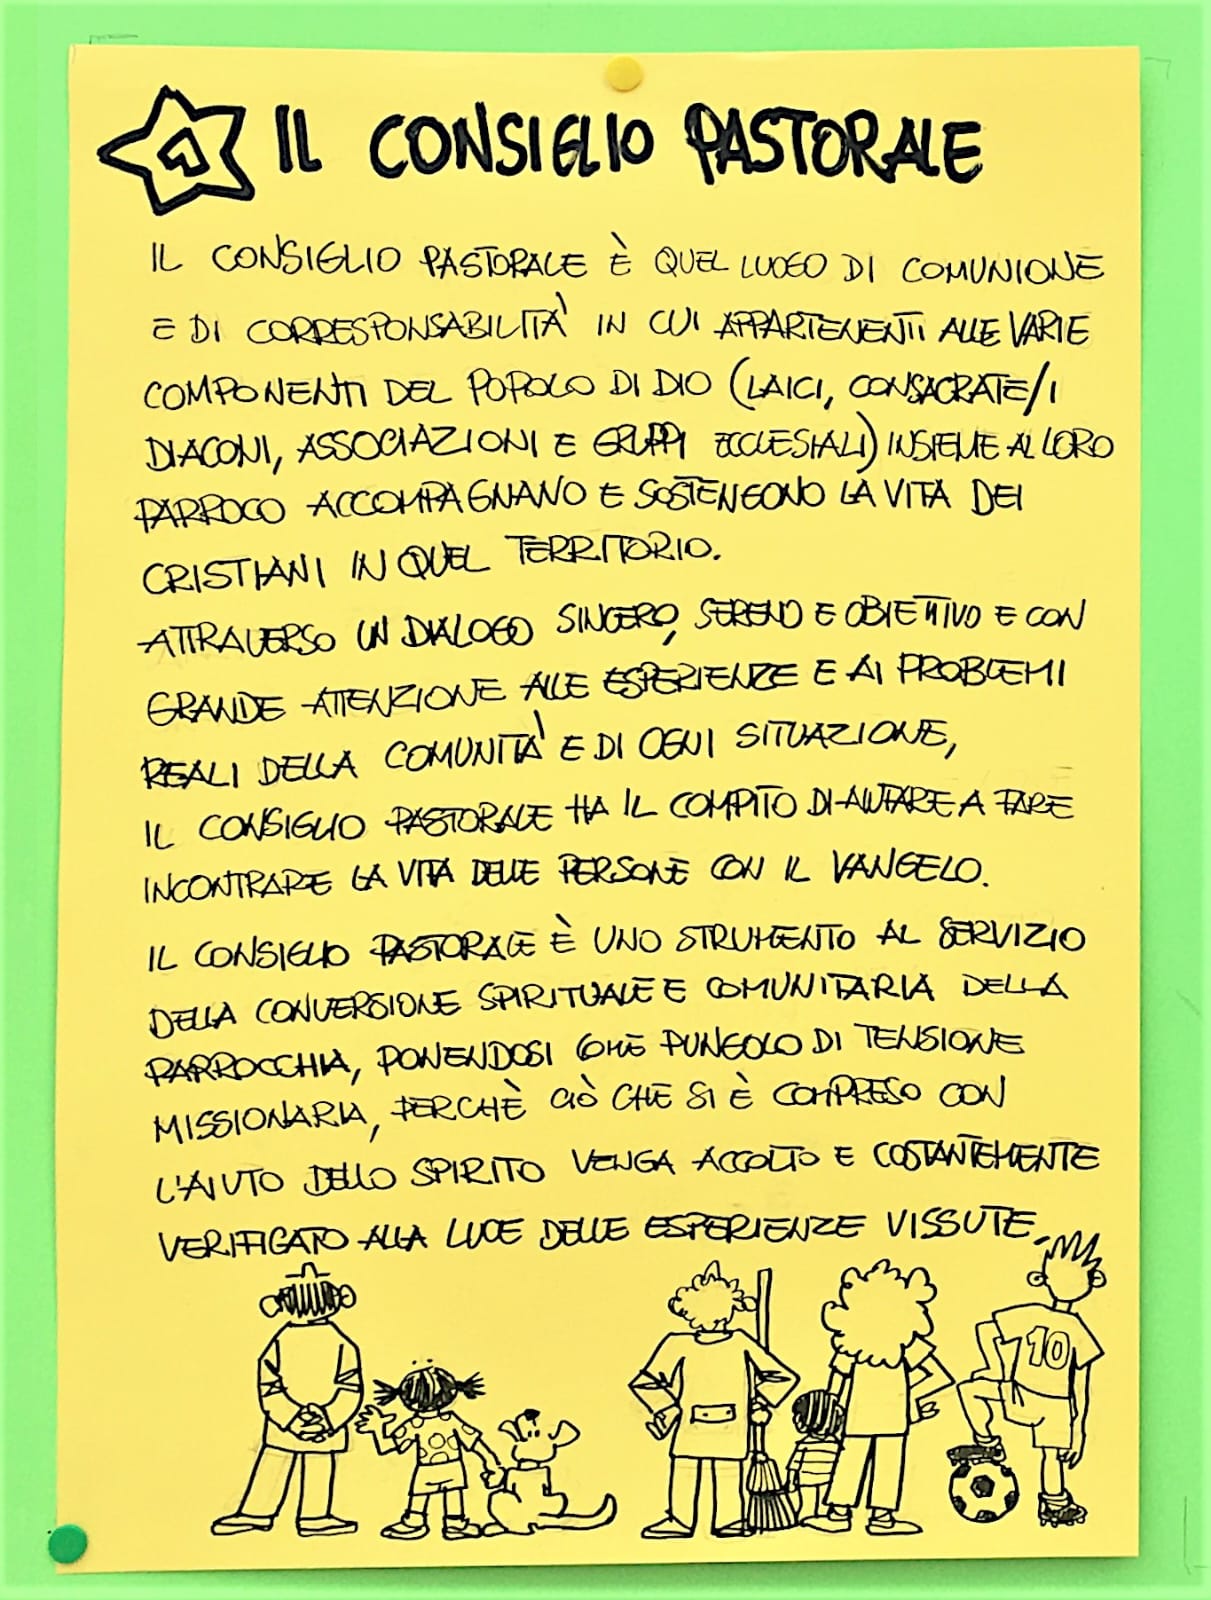 IL CONSIGLIO PASTORALE
IL CONSIGLIO PASTORALE È QUEL LUOGO DI COMUNIONE
E DI CORRESPONSABILITÀ IN CUI APPARTENENTI ALLE VARIE
COMPONENTI DEL POPOLO DI DIO (LAICI, CONSACRATE/I
DIACONI, ASSOCIAZIONI E GRUPPI ECCLESIALI) INSIEME AL LORO
PARROCO ACCOMPAGNANO E SOSTENGONO LA VITA DEI
CRISTIANI IN QUEL TERRITORIO.
ATTRAVERSO UN DIALOGO SINCERO, SERENO E OBIETTIVO E CON
GRANDE ATTENZIONE ALLE ESPERIENZE E AI PROBLEMI
REALI DELLA COMUNITÀ E DI OGNI SITUAZIONE,
IL CONSIGLIO PASTORALE HA IL COMPITO DI AIUTARE A FARE
INCONTRARE LA VITA DELLE PERSONE CON IL VANGELO.
IL CONSIGLIO PASTORALE È UNO STRUMENTO AL SERVIZIO
DELLA CONVERSIONE SPIRITUALE E COMUNITARIA DELLA
PARROCCHIA, PONENDOSI COME PUNGOLO DI TENSIONE
MISSIONARIA, PERCHÈ CIÒ CHE SI È COMPRESO CON
L'AIUTO DELLO SPIRITO VENGA ACCOLTO E COSTANTEMENTE
VERIFICATO ALLA LUCE DELLE ESPERIENZE VISSUTE.
10